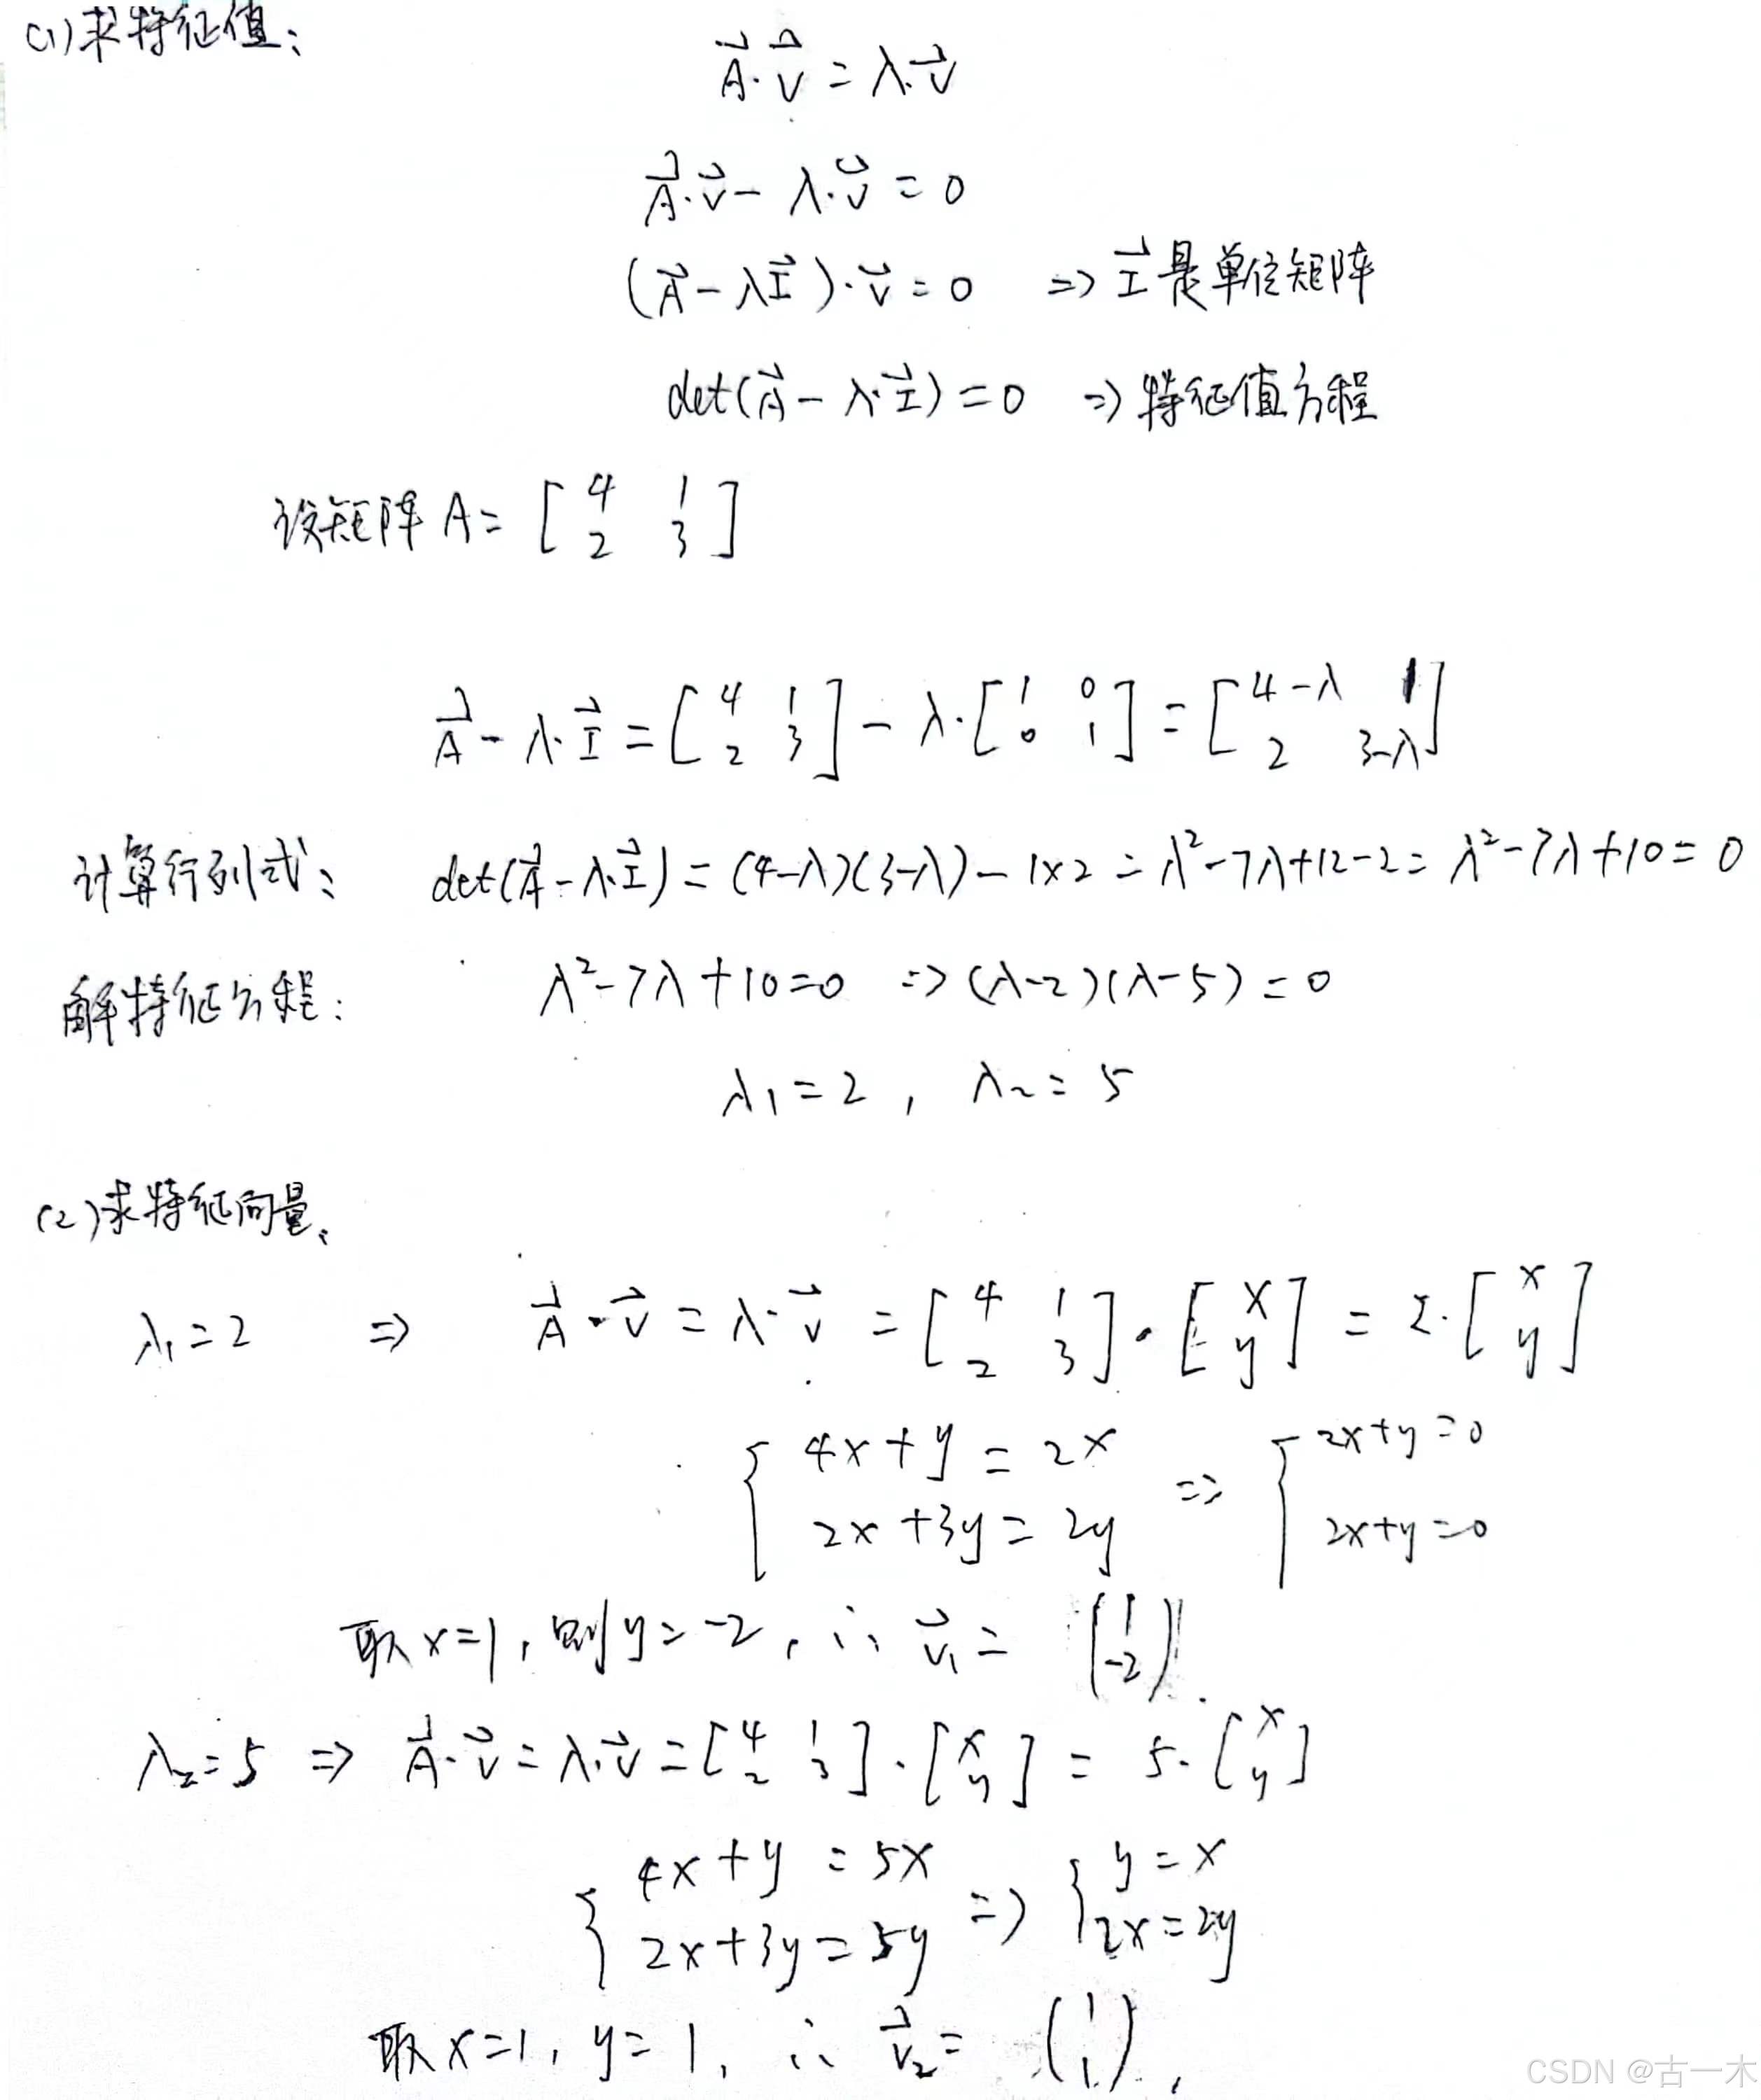 (1)求特征值:
A⃗·v⃗ = λ·v⃗
A⃗·v⃗ - λ·v⃗ = 0
(A⃗ - λI⃗)·v⃗ = 0 => I⃗是单位矩阵
det(A⃗ - λ·I⃗) = 0 => 特征值方程
设矩阵 A = [4 1; 2 3]
A⃗ - λ·I⃗ = [4 1; 2 3] - λ·[1 0; 0 1] = [4-λ 1; 2 3-λ]
计算行列式: det(A⃗ - λ·I⃗) = (4-λ)(3-λ) - 1×2 = λ²-7λ+12-2 = λ²-7λ+10 = 0
解特征方程: λ²-7λ+10=0 => (λ-2)(λ-5) = 0
λ₁=2, λ₂=5
(2)求特征向量:
λ₁=2 => A⃗·v⃗ = λ·v⃗ = [4 1; 2 3]·[x; y] = 2·[x; y]
{4x+y = 2x; 2x+3y = 2y => {2x+y=0; 2x+y=0
取x=1, 则y=-2, ∴ v⃗₁ = (1; -2)
λ₂=5 => A⃗·v⃗ = λ·v⃗ = [4 1; 2 3]·[x; y] = 5·[x; y]
{4x+y = 5x; 2x+3y = 5y => {y=x; 2x=2y
取x=1, y=1, ∴ v⃗₂ = (1; 1).
CSDN @古一木